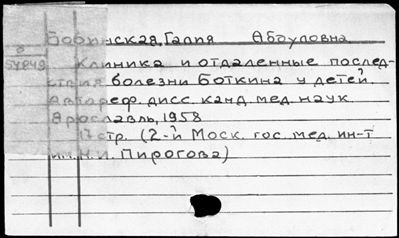 Бобинская, Галия Абдуловна
Клиника и отдаленные послед-
ствия болезни Боткина у детей.
Автореф. дисс. канд. мед. наук.
Ярославль, 1958
17 стр. (2-й Моск. гос. мед. ин-т
им. Н. И. Пирогова)